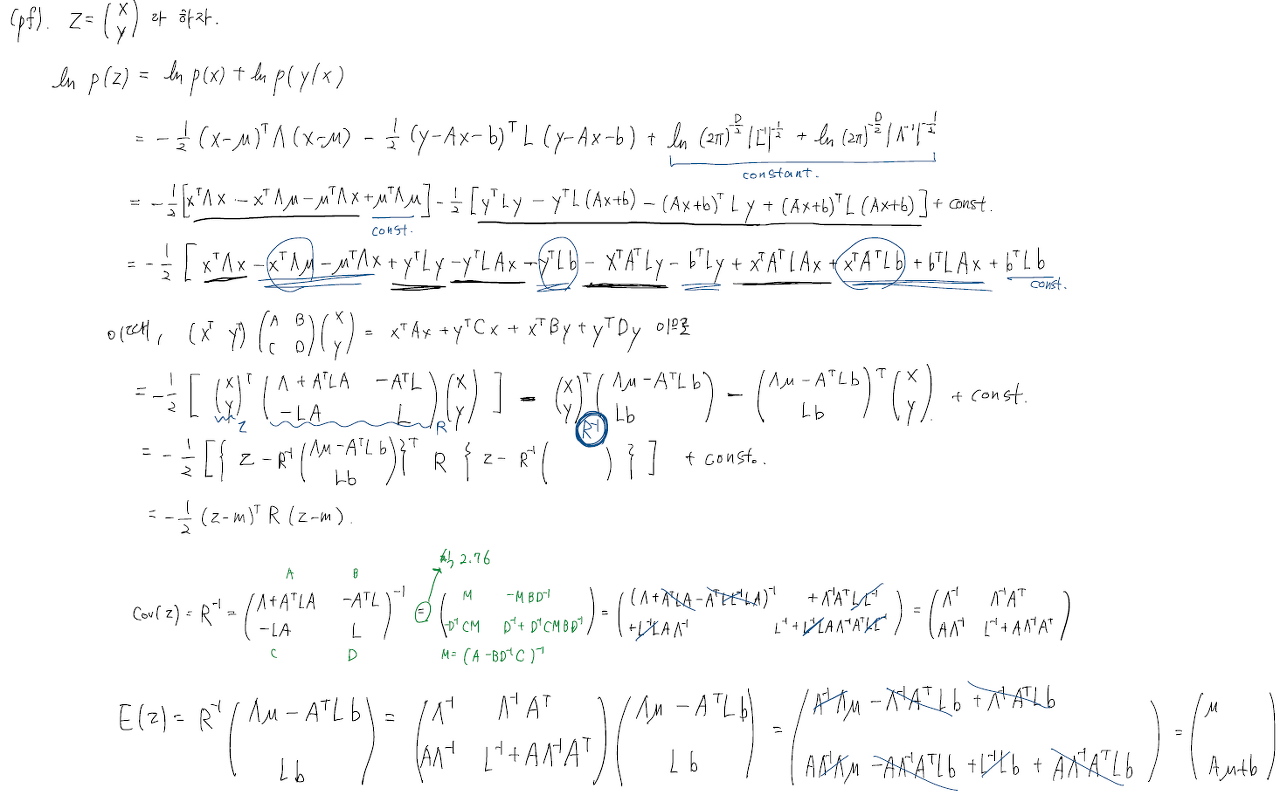 (pf). Z = (x y) 라 하자.
ln p(z) = ln p(x) + ln p(y/x)
= -1/2 (x-μ)ᵀΛ(x-μ) - 1/2 (y-Ax-b)ᵀL(y-Ax-b) + ln (2π)^(-D/2) |L⁻¹|^(-1/2) + ln (2π)^(-D/2) |Λ⁻¹|^(-1/2)
constant.
= -1/2 [xᵀΛx - xᵀΛμ - μᵀΛx + μᵀΛμ] - 1/2 [yᵀLy - yᵀL(Ax+b) - (Ax+b)ᵀLy + (Ax+b)ᵀL(Ax+b)] + const.
const.
= -1/2 [xᵀΛx - xᵀΛμ - μᵀΛx + yᵀLy - yᵀLAx - yᵀLb - xᵀAᵀLy - bᵀLy + xᵀAᵀLAx + xᵀAᵀLb + bᵀLAx + bᵀLb
const.
이때, (xᵀ yᵀ) (A B C D) (x y) = xᵀAx + yᵀCx + xᵀBy + yᵀDy 이므로
= -1/2 [ (x y)ᵀ (Λ+AᵀLA -AᵀL -LA L) (x y) ] - (x y)ᵀ (Λμ-AᵀLb Lb) - (Λμ-AᵀLb Lb)ᵀ (x y) + const.
z R R⁻¹
= -1/2 [{ z - R⁻¹ (Λμ-AᵀLb Lb) }ᵀ R { z - R⁻¹ ( ) } ] + const.
= -1/2 (z-m)ᵀ R (z-m).
식 2.76
A B
Cov(z) = R⁻¹ = (Λ+AᵀLA -AᵀL -LA L)⁻¹ = (M -MBD⁻¹ -D⁻¹CM D⁻¹+D⁻¹CMBD⁻¹) = ((Λ+AᵀLA-AᵀLL⁻¹LA)⁻¹ +Λ⁻¹AᵀLL⁻¹ +L⁻¹LAΛ⁻¹ L⁻¹+L⁻¹LAΛ⁻¹AᵀLL⁻¹) = (Λ⁻¹ Λ⁻¹Aᵀ AΛ⁻¹ L⁻¹+AΛ⁻¹Aᵀ)
C D M = (A-BD⁻¹C)⁻¹
E(z) = R⁻¹ (Λμ-AᵀLb Lb) = (Λ⁻¹ Λ⁻¹Aᵀ AΛ⁻¹ L⁻¹+AΛ⁻¹Aᵀ) (Λμ-AᵀLb Lb) = (Λ⁻¹Λμ - Λ⁻¹AᵀLb + Λ⁻¹AᵀLb AΛ⁻¹Λμ - AΛ⁻¹AᵀLb + L⁻¹Lb + AΛ⁻¹AᵀLb) = (μ Aμ+b)